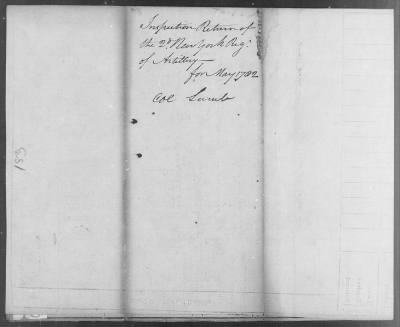 Inspection Return of
the 2d New York Regt
of Artillery —
for May 1782
Col Lamb